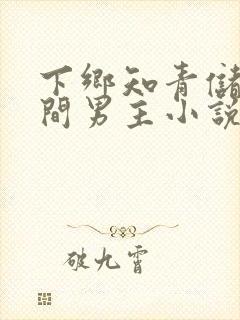 下鄉知青儲
間男主小説
破九霄